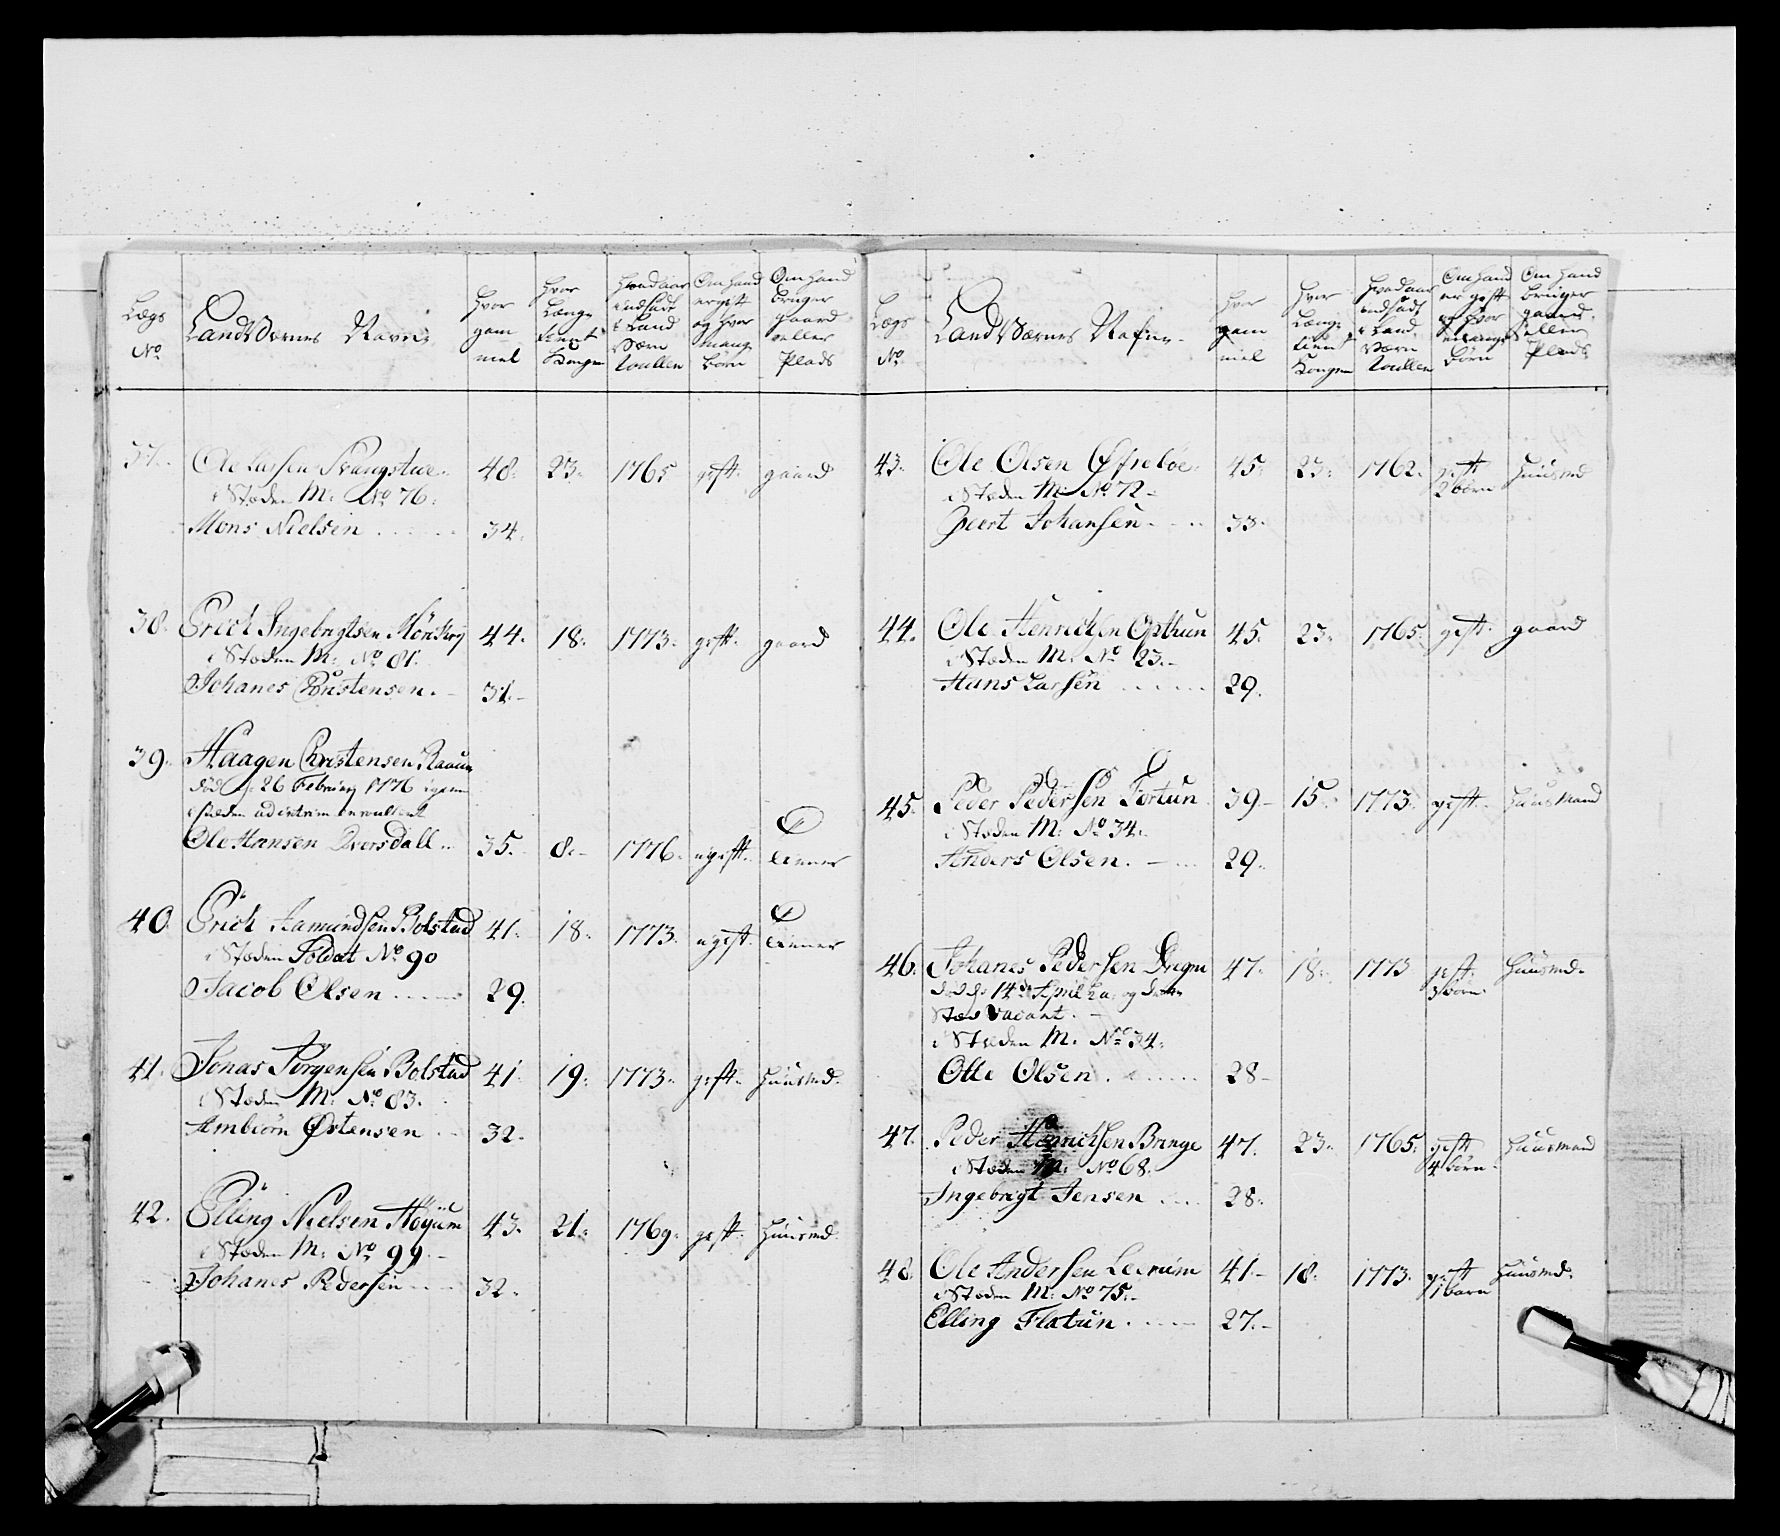 Lægs No
LandVærnes Navne
Hvor gam mel
Hvor Længe tient Kongen
Hvad aar indsadt i Land Værn Roullen
Om hand er gift og hvor mange børn
Om hand bruger gaard eller Plads
37. Ole Larsen Svangstue. 48. 23. 1765 gift. gaard
i Stæden M: No 76.
Mons Nielsen 34.
38. Erich Ingebrigtsen 44. 18. 1773. gift. gaard
i Stæden M: No 81.
Johanes Christensen. 31.
39. Haagen Christensen Raaum
død d: 26 Februarij 1776 igien
i stæden ad intrim enroullerit
Ole Hansen Dversdall 35. 8. 1776. ugift. tienner
40. Erich Amundsen Bolstad 41. 18. 1773. ugift. tienner
i Stæden Soldat No 90
Jacob Olsen 29.
41. Jonas Jørgensen Bolstad 41. 19. 1773. gift. Huusmd.
i Stæden M: No 83.
Ambiörn Østensen 32.
42. Elling Nielsen Høyum 43. 21. 1769. gift. Huusmd.
i Stæden M: No 99.
Johanes Pedersen 32.
Lægs No
LandVærnes Nafne
Hvor gam mel
Hvor Længe tient Kongen
Hvad aar indsadt i Land Værn Roullen
Om hand er gift og hvor mange børn
Om hand bruger gaard eller Plads
43. Ole Olsen Øfreløe. 45. 23. 1762. gift 2 børn Huusmd
i Stæden M: No 72
Geert Johansen 33.
44. Ole Henrichsen Opthun 45. 23. 1765. gift. gaard
i Stæden M: No 23.
Hans Larsen 29.
45. Peder Pedersen Fortun 39 15. 1773. gift. Huusmand
i Stæden M: No 34.
Anders Olsen. 29.
46. Johanes Pedersen Dregni 47. 18. 1773 gift. 3 børn. Huusmd.
død d: 14de April h: a: og dens
Stæd Vacant.
i Stæden M. No 34.
Olle Olsen. 28
47. Peder Henrichsen Bringe 47. 23. 1765. gift 4 børn. Huusmand
i Stæden M: No 68.
Ingebrigt Jensen 28.
48. Ole Andersen Leerum 41. 18. 1773. gift 1 barn Huusmd.
i Stæden M: No 75.
Elling Flatun 27.